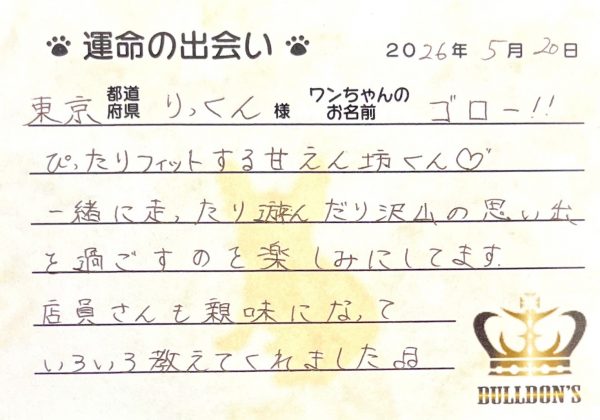 運命の出会い 2026年 5月 20日
東京 都道府県 りっくん 様 ワンちゃんのお名前 ゴロー!!
ぴったりフィットする甘えん坊くん♡
一緒に走ったり遊んだり沢山の思い出
を過ごすのを楽しみにしてます
店員さんも親味になって
いろいろ教えてくれました
BULLDON'S